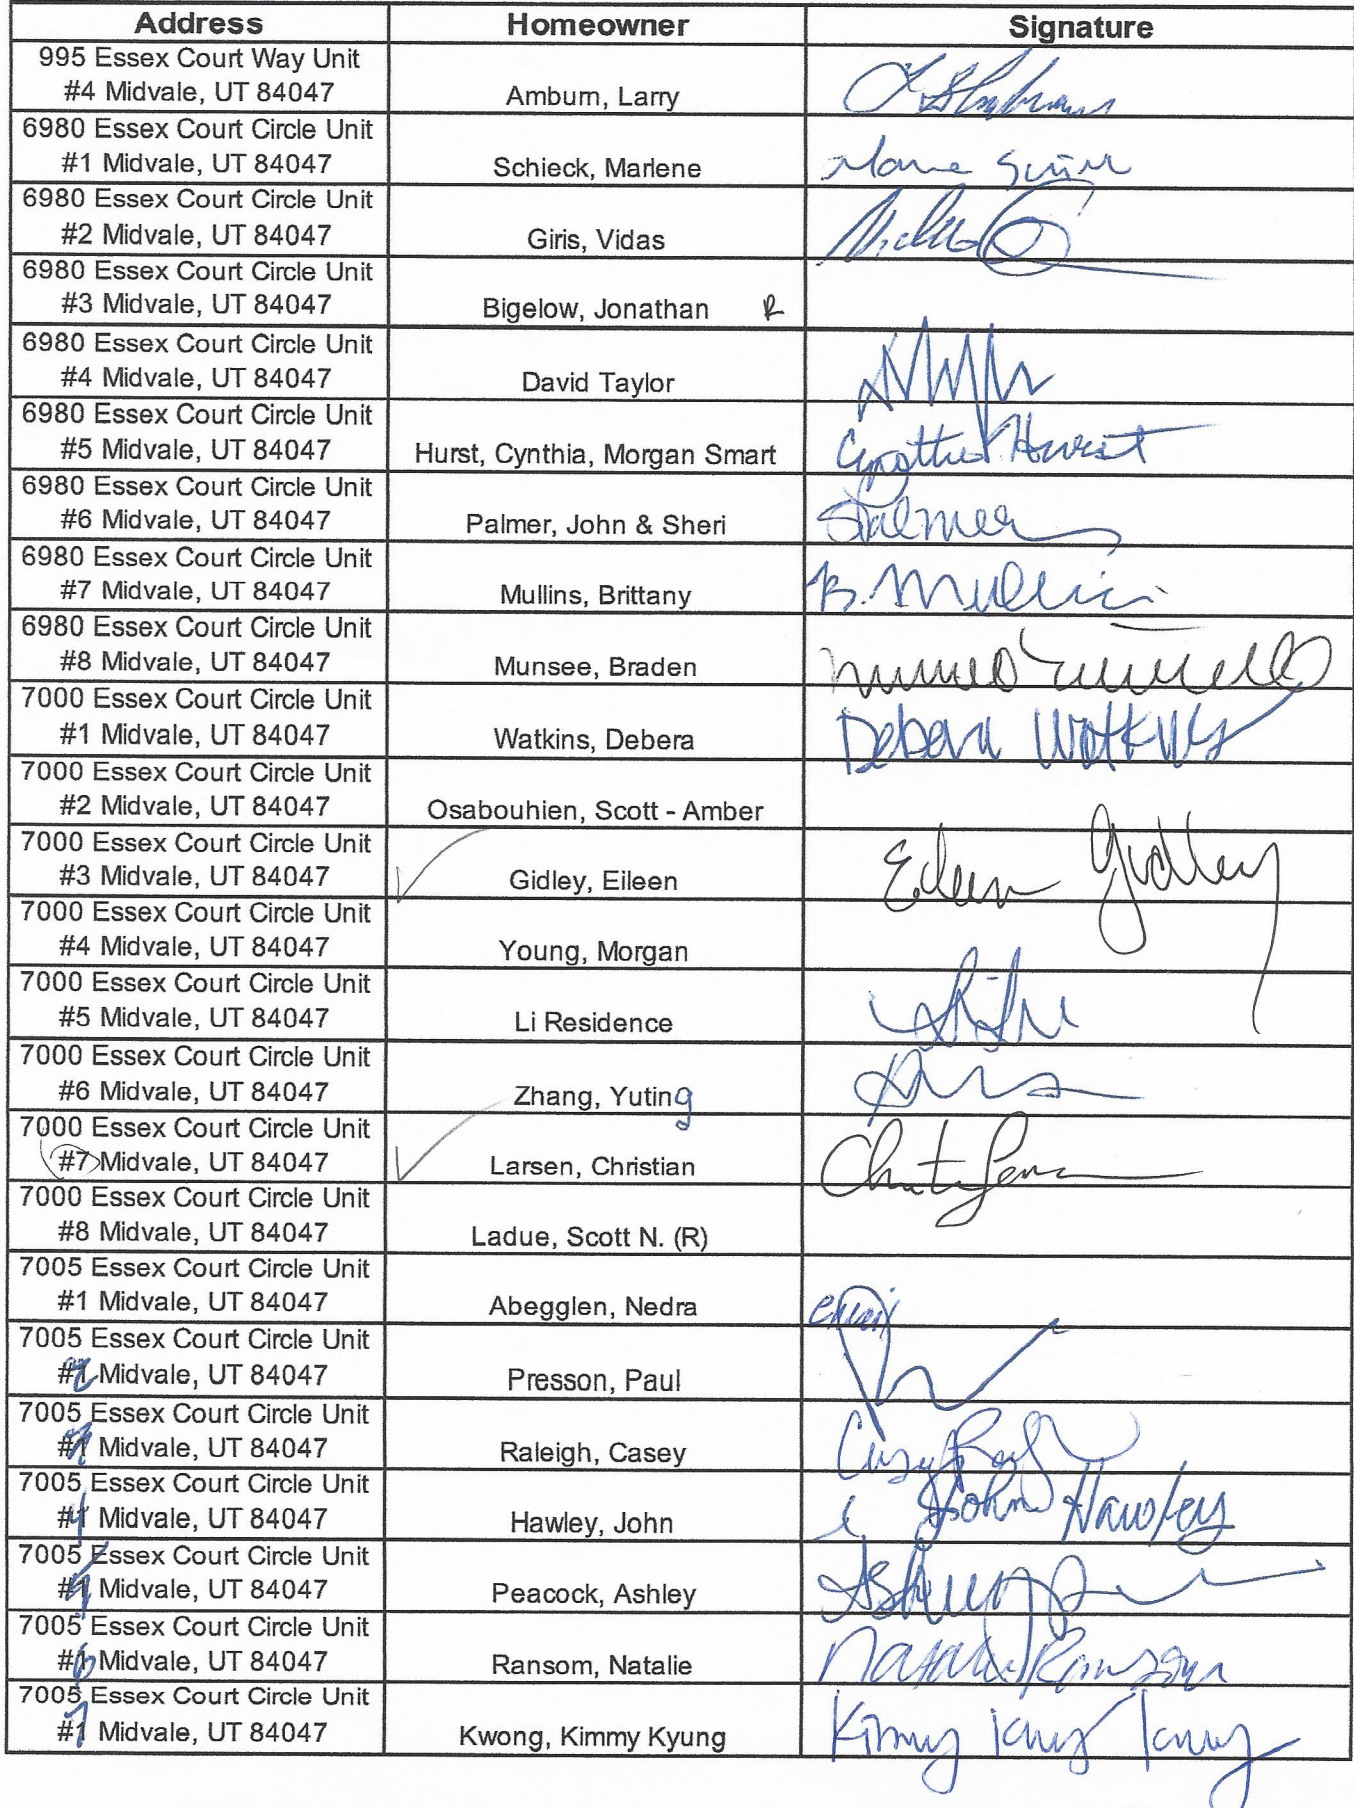 Address Homeowner Signature
995 Essex Court Way Unit
#4 Midvale, UT 84047 Amburn, Larry
6980 Essex Court Circle Unit
#1 Midvale, UT 84047 Schieck, Marlene
6980 Essex Court Circle Unit
#2 Midvale, UT 84047 Giris, Vidas
6980 Essex Court Circle Unit
#3 Midvale, UT 84047 Bigelow, Jonathan R
6980 Essex Court Circle Unit
#4 Midvale, UT 84047 David Taylor
6980 Essex Court Circle Unit
#5 Midvale, UT 84047 Hurst, Cynthia, Morgan Smart Cynthia Hurst
6980 Essex Court Circle Unit
#6 Midvale, UT 84047 Palmer, John & Sheri SPalmer
6980 Essex Court Circle Unit
#7 Midvale, UT 84047 Mullins, Brittany B. Mullins
6980 Essex Court Circle Unit
#8 Midvale, UT 84047 Munsee, Braden
7000 Essex Court Circle Unit
#1 Midvale, UT 84047 Watkins, Debera Debera Watkins
7000 Essex Court Circle Unit
#2 Midvale, UT 84047 Osabouhien, Scott - Amber
7000 Essex Court Circle Unit
#3 Midvale, UT 84047 Gidley, Eileen Eileen Gidley
7000 Essex Court Circle Unit
#4 Midvale, UT 84047 Young, Morgan
7000 Essex Court Circle Unit
#5 Midvale, UT 84047 Li Residence
7000 Essex Court Circle Unit
#6 Midvale, UT 84047 Zhang, Yuting
7000 Essex Court Circle Unit
#7 Midvale, UT 84047 Larsen, Christian
7000 Essex Court Circle Unit
#8 Midvale, UT 84047 Ladue, Scott N. (R)
7005 Essex Court Circle Unit
#1 Midvale, UT 84047 Abegglen, Nedra
7005 Essex Court Circle Unit
#2 Midvale, UT 84047 Presson, Paul
7005 Essex Court Circle Unit
#1 Midvale, UT 84047 Raleigh, Casey
7005 Essex Court Circle Unit
#4 Midvale, UT 84047 Hawley, John John Hawley
7005 Essex Court Circle Unit
#5 Midvale, UT 84047 Peacock, Ashley
7005 Essex Court Circle Unit
#6 Midvale, UT 84047 Ransom, Natalie Natalie Ransom
7005 Essex Court Circle Unit
#7 Midvale, UT 84047 Kwong, Kimmy Kyung